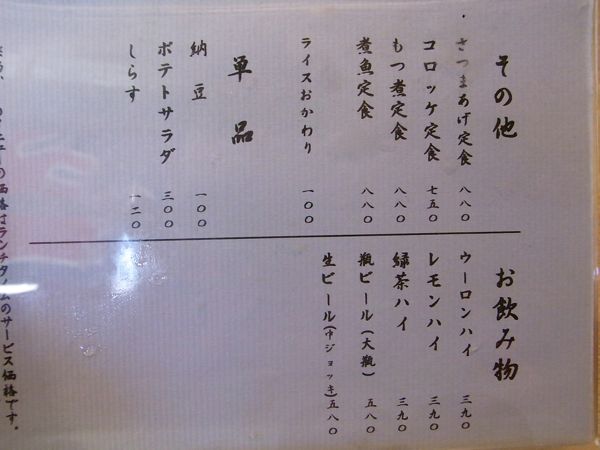 その他
さつまあげ定食 八八〇
コロッケ定食 七五〇
もつ煮定食 八八〇
煮魚定食 八八〇
ライスおかわり 一〇〇
単品
納豆 一〇〇
ポテトサラダ 三〇〇
しらす 一二〇
お飲み物
ウーロンハイ 三九〇
レモンハイ 三九〇
緑茶ハイ 三九〇
瓶ビール(大瓶) 五八〇
生ビール(中ジョッキ) 五八〇
の価格はランチタイムのサービス価格です。